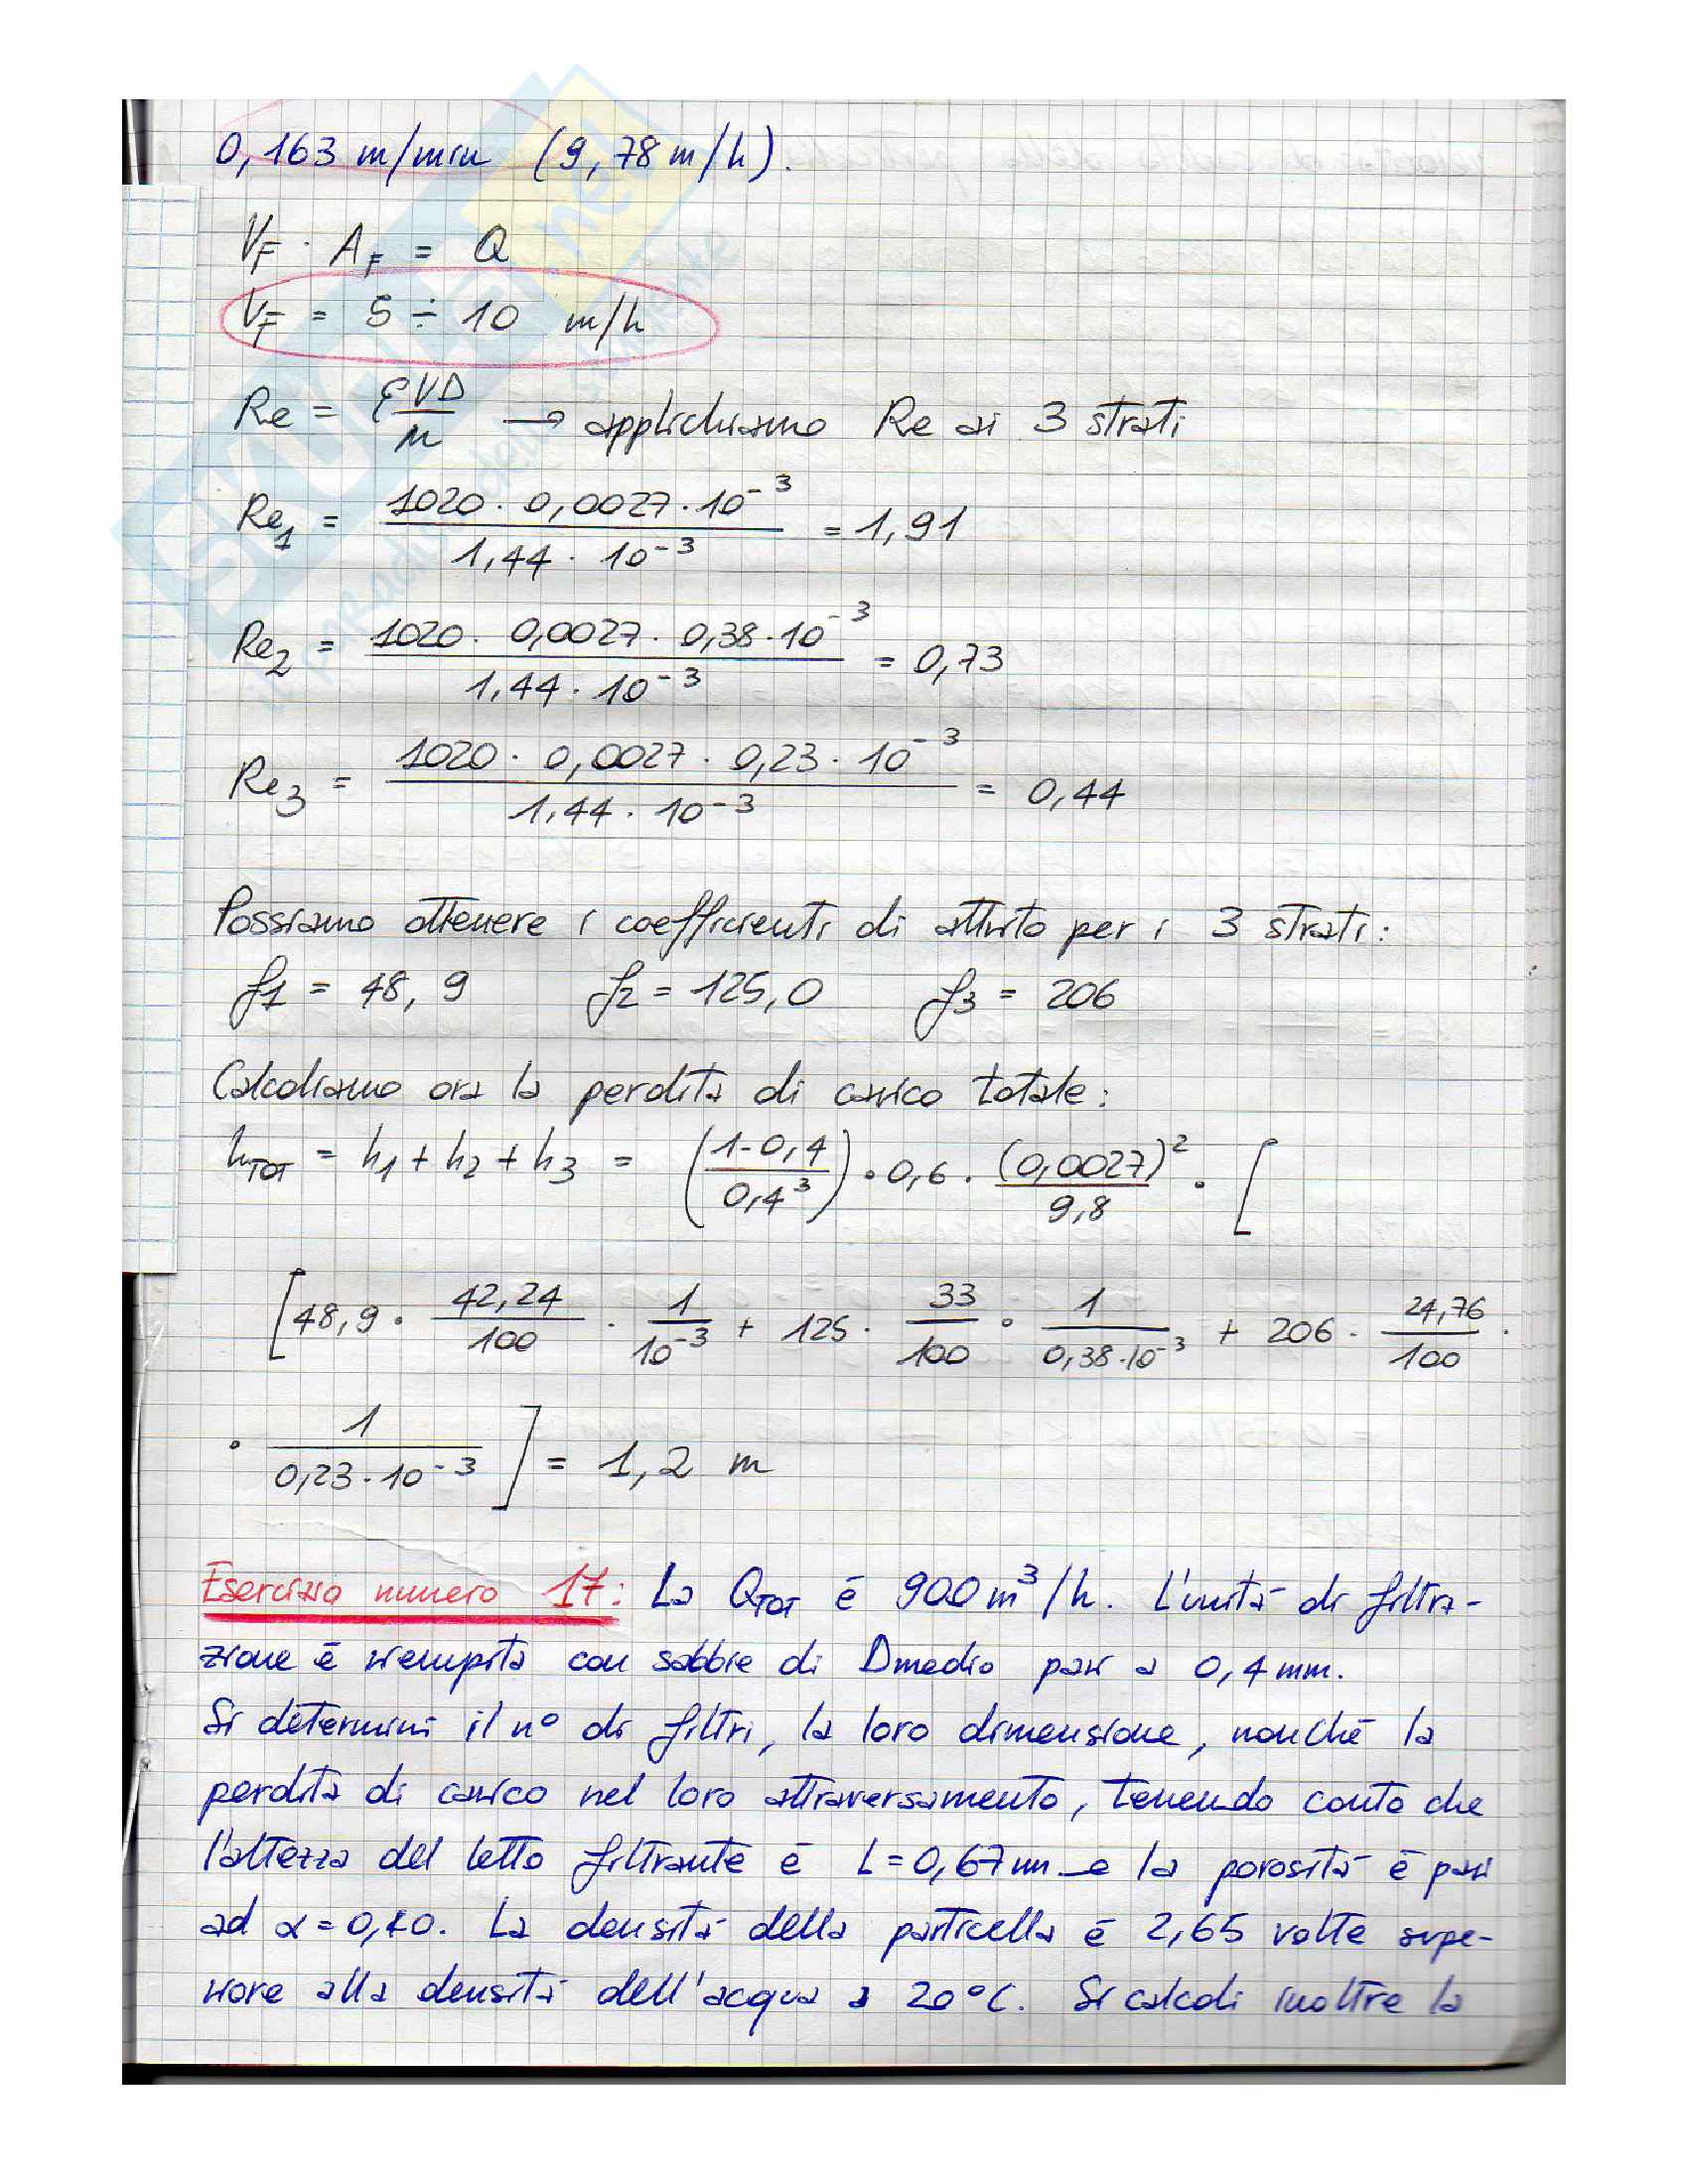 0,163 m/min (9,78 m/h).
V_F · A_F = Q
V_F = 5 ÷ 10 m/h
Re = ρVD/μ → applichiamo Re ai 3 strati
Re_1 = 1020 · 0,0027 · 10^-3 / 1,44 · 10^-3 = 1,91
Re_2 = 1020 · 0,0027 · 0,38 · 10^-3 / 1,44 · 10^-3 = 0,73
Re_3 = 1020 · 0,0027 · 0,23 · 10^-3 / 1,44 · 10^-3 = 0,44
Possiamo ottenere i coefficienti di attrito per i 3 strati:
f_1 = 48,9 f_2 = 125,0 f_3 = 206
Calcoliamo ora la perdita di carico totale:
h_TOT = h_1 + h_2 + h_3 = (1-0,4 / 0,4^3) · 0,6 · (0,0027)^2 / 9,8 · [
[48,9 · 42,24/100 · 1/10^-3 + 125 · 33/100 · 1/0,38·10^-3 + 206 · 24,76/100 ·
· 1/0,23·10^-3 ] = 1,2 m
Esercizio numero 17: La Q_TOT è 900 m^3/h. L'unità di filtra-
zione è riempita con sabbie di Dmedio pari a 0,4 mm.
Si determini il n° di filtri, la loro dimensione, nonché la
perdita di carico nel loro attraversamento, tenendo conto che
l'altezza del letto filtrante è L = 0,67 m e la porosità è pari
ad α = 0,40. La densità della particella è 2,65 volte supe-
riore alla densità dell'acqua a 20°C. Si calcoli inoltre la